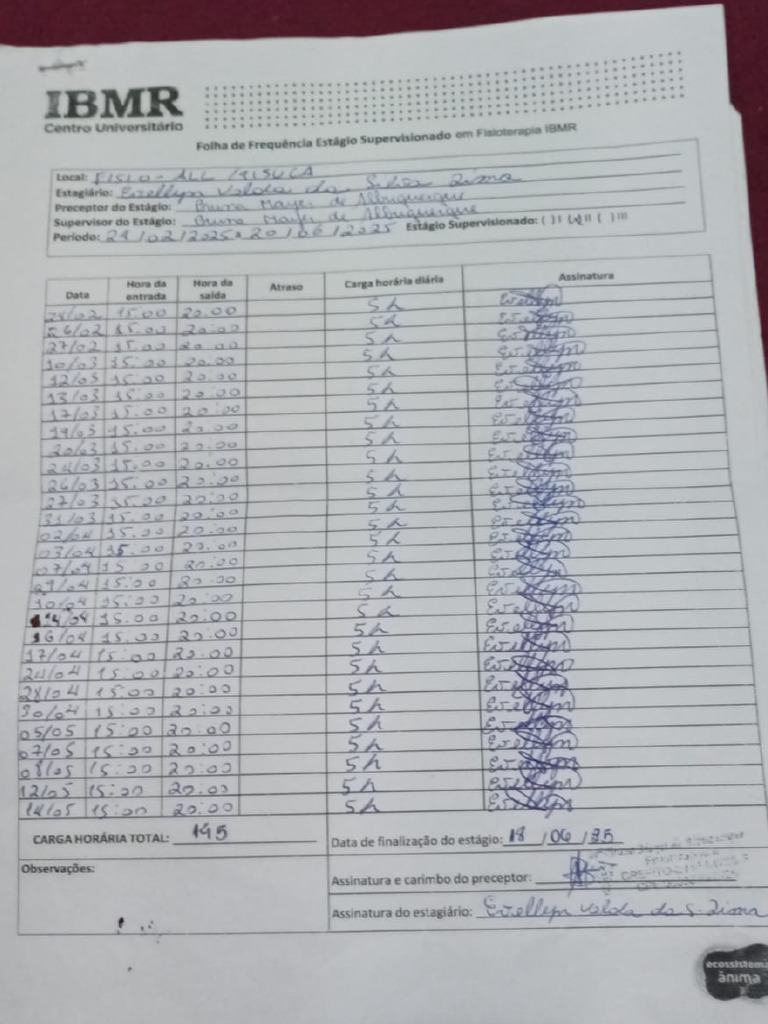 IBMR
Centro Universitário
Folha de Frequência Estágio Supervisionado em Fisioterapia IBMR
Local: FISIO-ALL TIJUCA
Estagiário: Evellyn Valda da Silva Lima
Preceptor do Estágio: Bruna Mayer de Albuquerque
Supervisor do Estágio: Bruna Mayer de Albuquerque
Período: 24/02/2025 a 20/06/2025 Estágio Supervisionado: ( ) I (x) II ( ) III
Data Hora da entrada Hora da saída Atraso Carga horária diária Assinatura
24/02 15:00 20:00 5h Evellyn
26/02 15:00 20:00 5h Evellyn
27/02 15:00 20:00 5h Evellyn
10/03 15:00 20:00 5h Evellyn
12/03 15:00 20:00 5h Evellyn
13/03 15:00 20:00 5h Evellyn
17/03 15:00 20:00 5h Evellyn
19/03 15:00 20:00 5h Evellyn
20/03 15:00 20:00 5h Evellyn
24/03 15:00 20:00 5h Evellyn
26/03 15:00 20:00 5h Evellyn
27/03 15:00 20:00 5h Evellyn
31/03 15:00 20:00 5h Evellyn
02/04 15:00 20:00 5h Evellyn
03/04 15:00 20:00 5h Evellyn
07/04 15:00 20:00 5h Evellyn
15:00 20:00 5h Evellyn
10/04 15:00 20:00 5h Evellyn
14/04 15:00 20:00 5h Evellyn
16/04 15:00 20:00 5h Evellyn
17/04 15:00 20:00 5h Evellyn
24/04 15:00 20:00 5h Evellyn
28/04 15:00 20:00 5h Evellyn
30/04 15:00 20:00 5h Evellyn
05/05 15:00 20:00 5h Evellyn
07/05 15:00 20:00 5h Evellyn
08/05 15:00 20:00 5h Evellyn
12/05 15:00 20:00 5h Evellyn
14/05 15:00 20:00 5h Evellyn
CARGA HORÁRIA TOTAL: 145 Data de finalização do estágio: 18/06/25
Observações:
Assinatura e carimbo do preceptor:
Assinatura do estagiário: Evellyn Valda da S. Lima
ecossistema
ânima